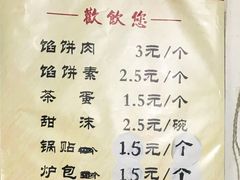 歡飲您
馅饼肉 3元/个
馅饼素 2.5元/个
茶蛋 1.5元/个
甜沫 2.5元/碗
锅贴 1.5元/个
炉包 1.5元/个